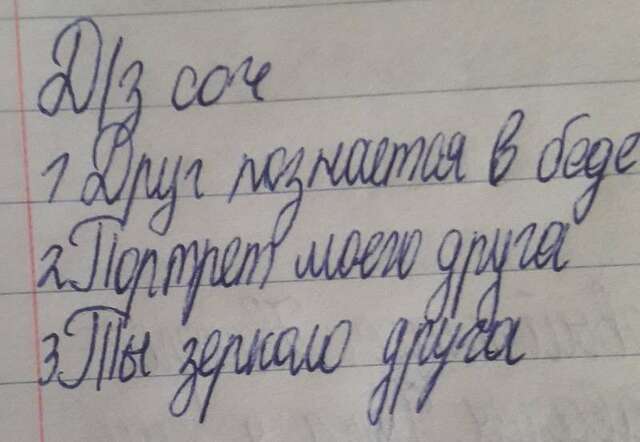 Д/з соч
1 Друг познается в беде
2 Портрет моего друга
3 Ты зеркало друга